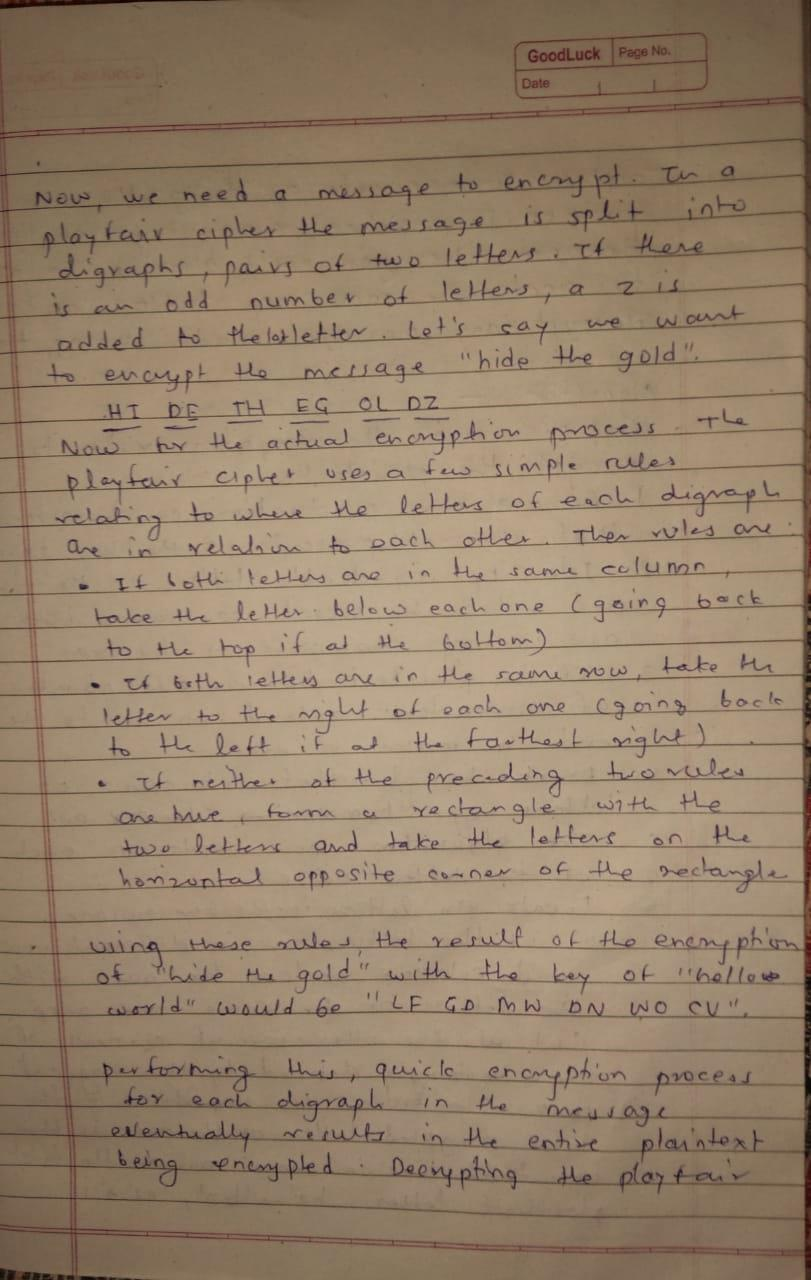 GoodLuck Page No.
Date
Now, we need a message to encrypt. In a
playfair cipher the message is split into
digraphs, pairs of two letters. If there
is an odd number of letters, a z is
added to the last letter. Let's say we want
to encrypt the message "hide the gold".
HI DE TH EG OL DZ
Now for the actual encryption process. The
playfair cipher uses a few simple rules
relating to where the letters of each digraph
are in relation to each other. Ther rules are:
• If both letters are in the same column,
take the letter below each one (going back
to the top if at the bottom)
• If both letters are in the same row, take the
letter to the right of each one (going back
to the left if at the farthest right)
• If neither of the preceding two rules
are true, form a rectangle with the
two letters and take the letters on the
horizontal opposite corner of the rectangle
using these rules, the result of the encryption
of "hide the gold" with the key of "hellow
world" would be "LF GD MW DN WO CV".
performing this, quick encryption process
for each digraph in the message
eventually results in the entire plaintext
being encrypted. Decrypting the playfair